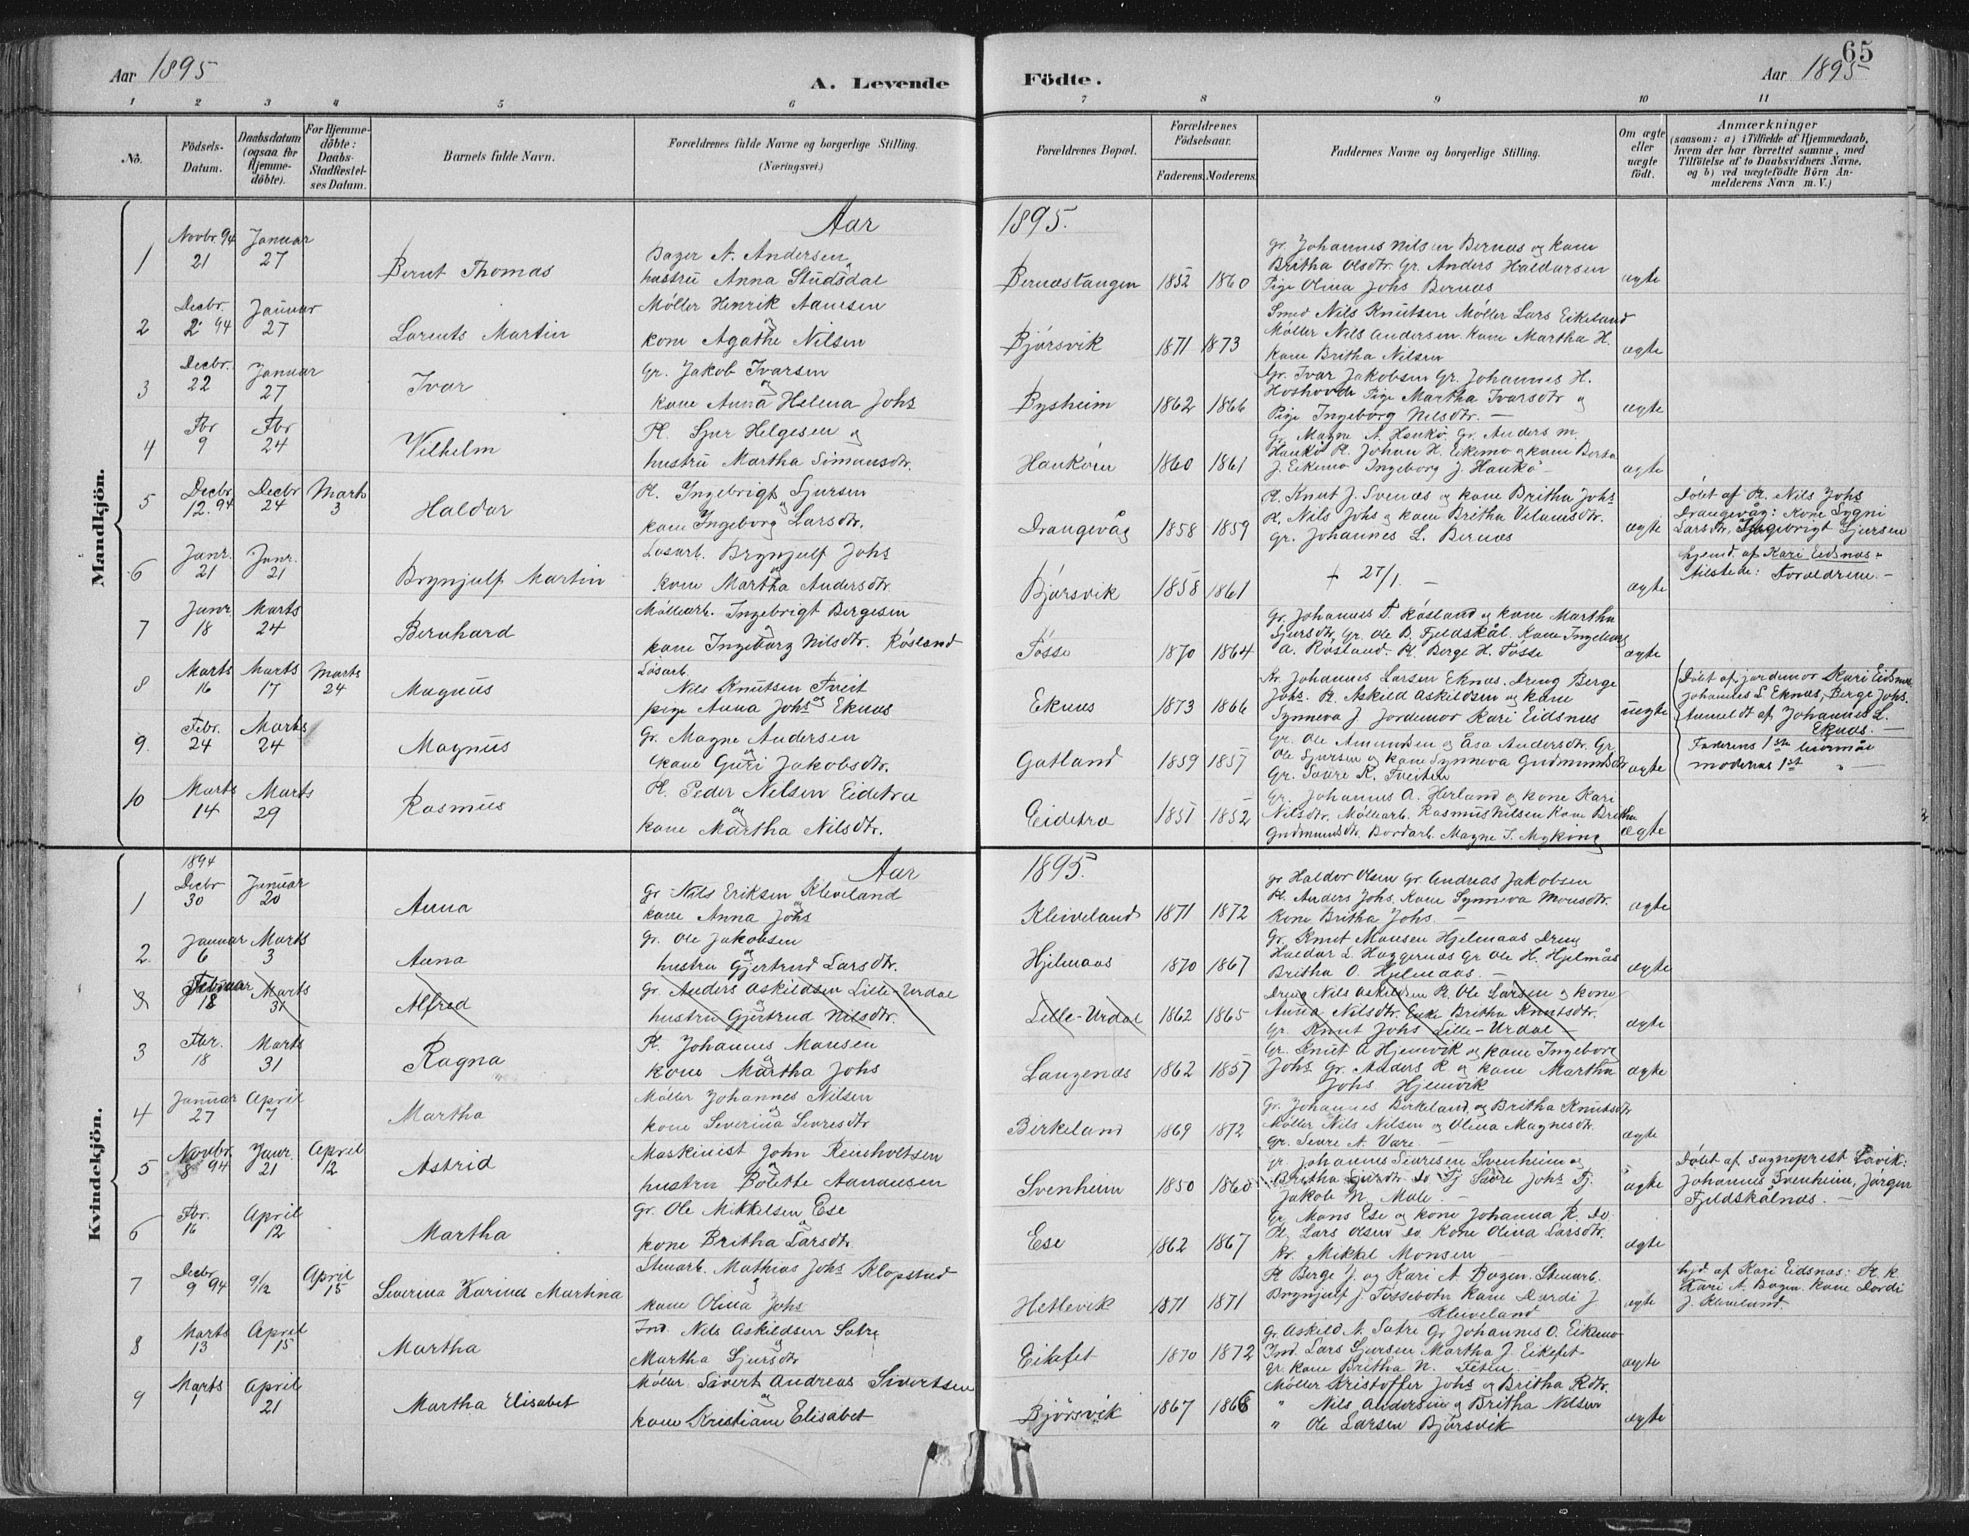 65
Aar 1895
A. Levende Födte.
Aar 1895
1 2 3 4 5 6 7 8 9 10 11
No.
Födsels-Datum.
Daabsdatum (ogsaa for Hjemme-döbte).
For Hjemme-döbte: Daabs-Stadfæstel-ses Datum.
Barnets fulde Navn.
Forældrenes fulde Navne og borgerlige Stilling.
(Næringsvei.)
Forældrenes Bopæl.
Forældrenes Födselsaar.
Faderens. Moderens.
Faddernes Navne og borgerlige Stilling.
Om ægte eller uægte födt.
Anmærkninger
(saasom: a) i Tilfælde af Hjemmedaab, hvem der har forrettet samme, med Tilföielse af to Daabsvidners Navne. og b) ved uægtefödte Börn An-melderens Navn m. V.)
Mandkjön.
Aar 1895.
1 Novbr. 94 21 Januar 27 Bernt Thomas
Bager A. Andersen
hustru Anna Studsdal
Bernæstangen 1852 1860
Gr. Johannes Nilsen Bernæs og kone
Britha Olsdtr. Gr. Anders Haldorsen
Pige Olina Johs Bernæs
ægte
2 Decbr. 2. 94 Januar 27 Lorents Martin
Møller Henrik Aamsen
og
kone Agathe Nilsen
Bjørsvik 1871 1873
Smed Nils Knutsen Møller Lars Eikeland
Møller Nils Andersen kone Martha H.
kone Britha Nilsen
ægte
3 Decbr. 22 Januar 27 Ivar
Gr. Jakob Ivarsen
og
kone Anna Helena Johs
Bysheim 1862 1866
Gr. Ivar Jakobsen Gr. Johannes H.
Hoshovde Pige Martha Ivarsdtr og
Pige Ingeborg Nilsdtr. —
ægte
4 Fbr 9 Fbr 24 Vilhelm
Pl. Sjur Helgesen og
hustru Martha Simonsdtr.
Haukøen 1860 1861
Gr. Magne A. Haukø Gr. Anders M.
Haukø Pl. Johan H. Eikemo og kone Berta
J. Eikemo Ingeborg J. Haukø
ægte
5 Decbr 12. 94 Decbr 24 Marts 3 Haldor
Pl. Ingebrigt Sjursen
og
kone Ingeborg Larsdtr.
Drangevåg 1858 1859
Pl. Knut J. Svenæs og kone Britha Johs
Pl. Nils Johs og kone Britha Vilumsdtr.
Gr. Johannes L. Bernæs
ægte
Døbt af Pl. Nils Johs
Drangevåg: Kone Sygni
Larsdtr. Ingebrigt Sjursen
6 Janr. 21 Janr. 21 Brynjulf Martin
Løsarb. Brynjulf Johs
og
kone Martha Andersdtr.
Bjørsvik 1858 1861
+ 27/1. —
ægte
hjemd. af Kari Eidsnæs.
tilstede: Forældrene. —
7 Janr 18 Marts 24 Bernhard
Møllearb. Ingebrigt Bergesen
og
kone Ingeborg Nilsdtr. Røsland
Tøsse 1870 1864
Gr. Johannes T. Røsland og kone Martha
Sjursdtr. Gr. Ole B. Fjeldskål. Kone Ingeborg
A. Røsland. Pl. Berge H. Tøsse
ægte
8 Marts 16 Marts 17 Marts 24 Magnus
Løsarb.
Nils Knutsen Tveit
og
pige Anna Johs Eknæs
Eknæs 1873 1866
Kr. Johannes Larsen Eknæs. Dreng Berge
Johs. Pl. Askild Askildsen og kone
Synneva J. Jordemor Kari Eidsnæs
uægte
Døbt af jordemor Kari Eidsnæs
Johannes L Eknæs, Berge Johs.
Anmeldt af Johannes L.
Eknæs. —
Faderens 1ste leiermål
moderens 1st " —
9. Febr. 24 Marts 24 Magnus
Gr. Magne Andersen
og
kone Guri Jakobsdtr.
Gatland 1859 1857
Gr. Ole Amundsen og Åsa Andersdtr. Gr.
Ole Sjursen og kone Synneva Gudmundsdtr
Gr. Sævre K. Tveiten
ægte
10 Marts 14 Marts 29 Rasmus
Pl. Peder Nilsen Eidetræ
og
kone Martha Nilsdtr.
Eidetræ 1851 1852
Gr. Johannes A. Herland og kone Kari
Nilsdtr. Møllearb. Rasmus Nilsen kone Britha
Gudmundsdtr Bordarb. Magne I. Myking
ægte
Kvindekjön.
Aar 1895.
1 1894 Decbr 30 Januar 20 Anna
Gr. Nils Eriksen Kleiveland
og
kone Anna Johs
Kleiveland 1871 1872
Gr Haldor Olsen Gr Andreas Jakobsen
Pl. Anders Johs. Kone Synneva Monsdtr.
Kone Britha Johs. —
ægte
2. Januar 6 Marts 3 Anna
Gr. Ole Jakobsen
og
hustru Gjertrud Larsdtr.
Hjelmaas 1870 1867
Gr. Knut Monsen Hjelmaas Dreng
Haldor L. Haggernæs Gr Ole H. Hjelmås
Britha O. Hjelmaas. —
ægte
3 Februar 18 Marts 31 Alfred
Gr. Anders Askildsen Lille-Urdal
og
hustru Gjertrud Nilsdtr.
Lille-Urdal 1862 1865
Dreng Nils Askildsen Pl. Ole Larsen og kone
Anna Nilsdtr. Enke Britha Knutsdtr.
Gr. Knut Johs Lille-Urdal —
ægte
3 Fbr. 18 Marts 31 Ragna
Pl. Johannes Monsen
og
kone Martha Johs
Langenæs 1862 1857
Gr. Knut A Hjemvik og kone Ingeborg
Johs Gr. Anders R og kone Martha
Johs Hjemvik
ægte
4 Januar 27 April 7 Martha
Møller Johannes Nilsen
og
kone Severina Sevresdtr.
Birkeland 1869 1872
Gr. Johannes Birkeland og Britha Knutsdtr
Møller Nils Nilsen og Olina Magnesdtr.
Gr. Sevre A. Vare. —
ægte
5 Novbr. 8 94 Janr. 21 April 12 Astrid
Maskinist John Reinholtsen
og
hustru Bolette Aanansen
Svenheim 1850 1860
Gr. Johannes Sevresen Svenheim og
Britha Sjursdtr. do Tj Sævre Johs Tj.
Jakob N. Male. —
ægte
Døbt af sogneprest Lavik:
Johannes Svenheim, Jørgen
Fjeldskålnæs. —
6 Fbr. 16 April 12 Martha
Gr. Ole Mikkelsen Ese
og
kone Britha Larsdtr.
Ese 1862 1867
Gr Mons Ese og kone Johanna R. do
Pl. Lars Olsen do. Kone Olina Larsdtr.
Kr. Mikkel Monsen —
ægte
7 Decbr 9 94 9/12 April 15 Severina Karina Martina
Stenarb. Mathias Johs Klopstad
og
kone Olina Johs
Hetlevik 1871 1871
Pl Berge J. og Kari A Bogen. Stenarb.
Brynjulf J. Tøssebotn kone Dordi J
Kleiveland
ægte
hjd. af Kari Eidsnæs: Pl. k.
Kari A. Bogen. kone Dordi
J. Kleiveland.
8 Marts 13 April 15 Martha
Ind. Nils Askildsen Sætre
og
Martha Sjursdtr
Eikefet 1870 1872
Gr. Askild N. Sætre Gr Johannes O. Eikemo
Ind. Lars Sjursen Martha J. Eikefet
Gr. kone Britha N. Feten. —
ægte
9 Marts 1 April 21 Martha Elisabet
Møller. Sivert Andreas Sivertsen
og
kone Kristiane Elisabet
Bjørsvik 1867 1866
Møller Kristoffer Johs og Britha Rdtr.
" Nils Andersen og Britha Nilsen
" Ole Larsen Bjørsvik
ægte